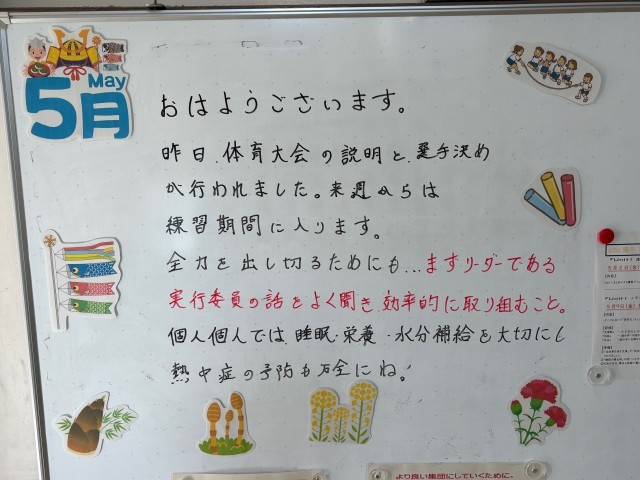 5月
May
おはようございます。
昨日、体育大会の説明と、選手決め
が行われました。来週からは
練習期間に入ります。
全力を出し切るためにも…まずリーダーである
実行委員の話をよく聞き効率的に取り組むこと。
個人個人では、睡眠・栄養・水分補給を大切にし
熱中症の予防も万全にね！
より良い集団にしていくために。